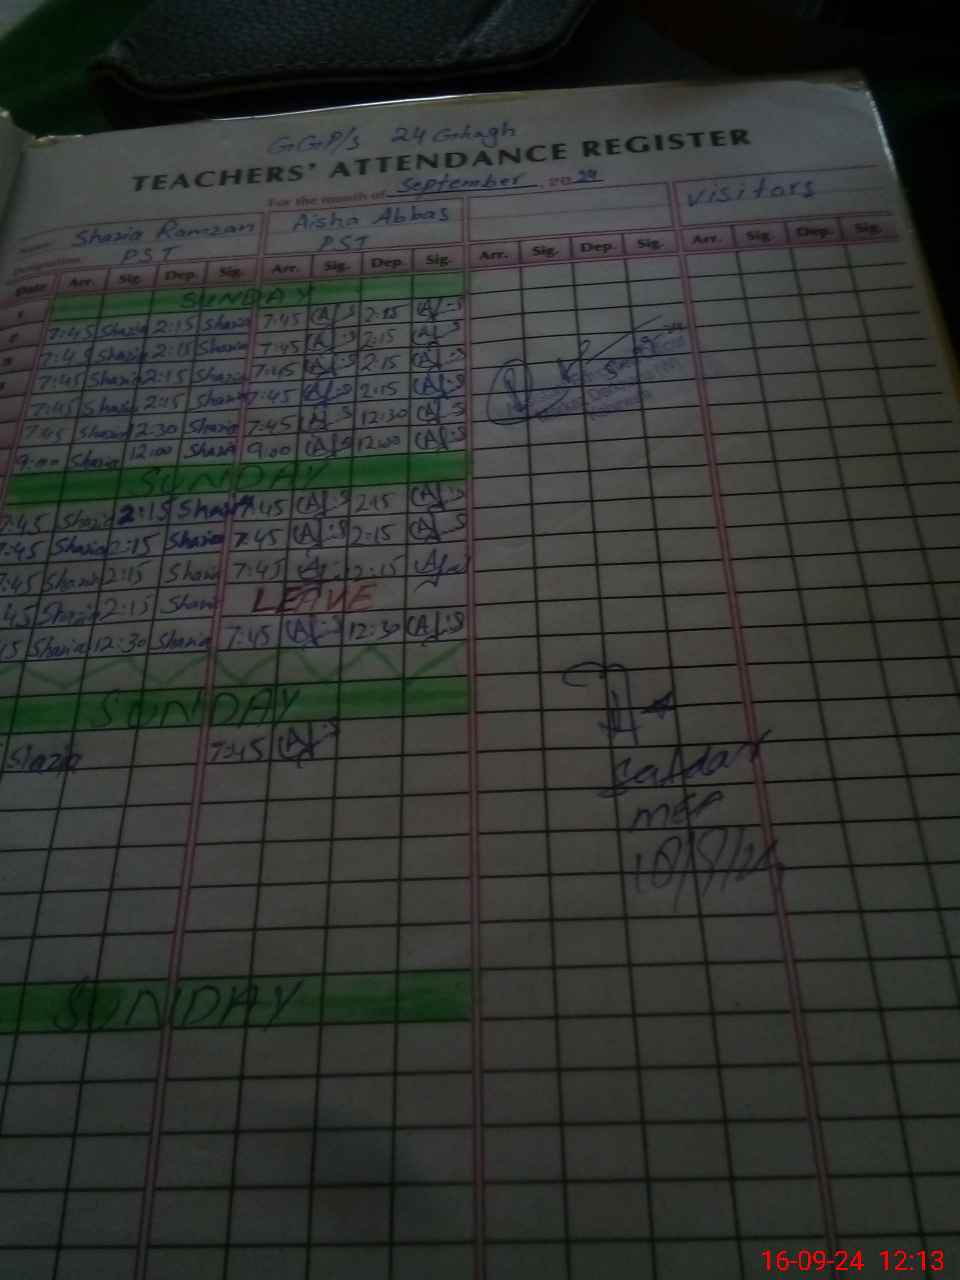 G.G.P/S 24 Ghagh
TEACHERS' ATTENDANCE REGISTER
For the month of September 2024
Shazia Ramzan Aisha Abbas visitors
PST PST
Date Arr. Sig. Dep. Sig. Arr. Sig. Dep. Sig. Arr. Sig. Dep. Sig. Arr. Sig. Dep. Sig.
SUNDAY
7:45 Shazia 2:15 Shazia 7:45 2:15
7:45 Shazia 2:15 Shazia 7:45 2:15
7:45 Shazia 2:15 Shazia 7:45 2:15
7:45 Shazia 2:15 Shazia 7:45 2:15
7:45 Shazia 12:30 Shazia 7:45 12:30
9:00 Shazia 12:00 Shazia 9:00 12:00
SUNDAY
7:45 Shazia 2:15 Shazia 7:45 2:15
7:45 Shazia 2:15 Shazia 7:45 2:15
7:45 Shazia 2:15 Shazia 7:45 2:15
45 Shazia 2:15 Shazia LEAVE
Shazia 12:30 Shazia 7:45 12:30
SUNDAY
Shazia 7:45
Safdar
MEA
SUNDAY
16-09-24 12:13